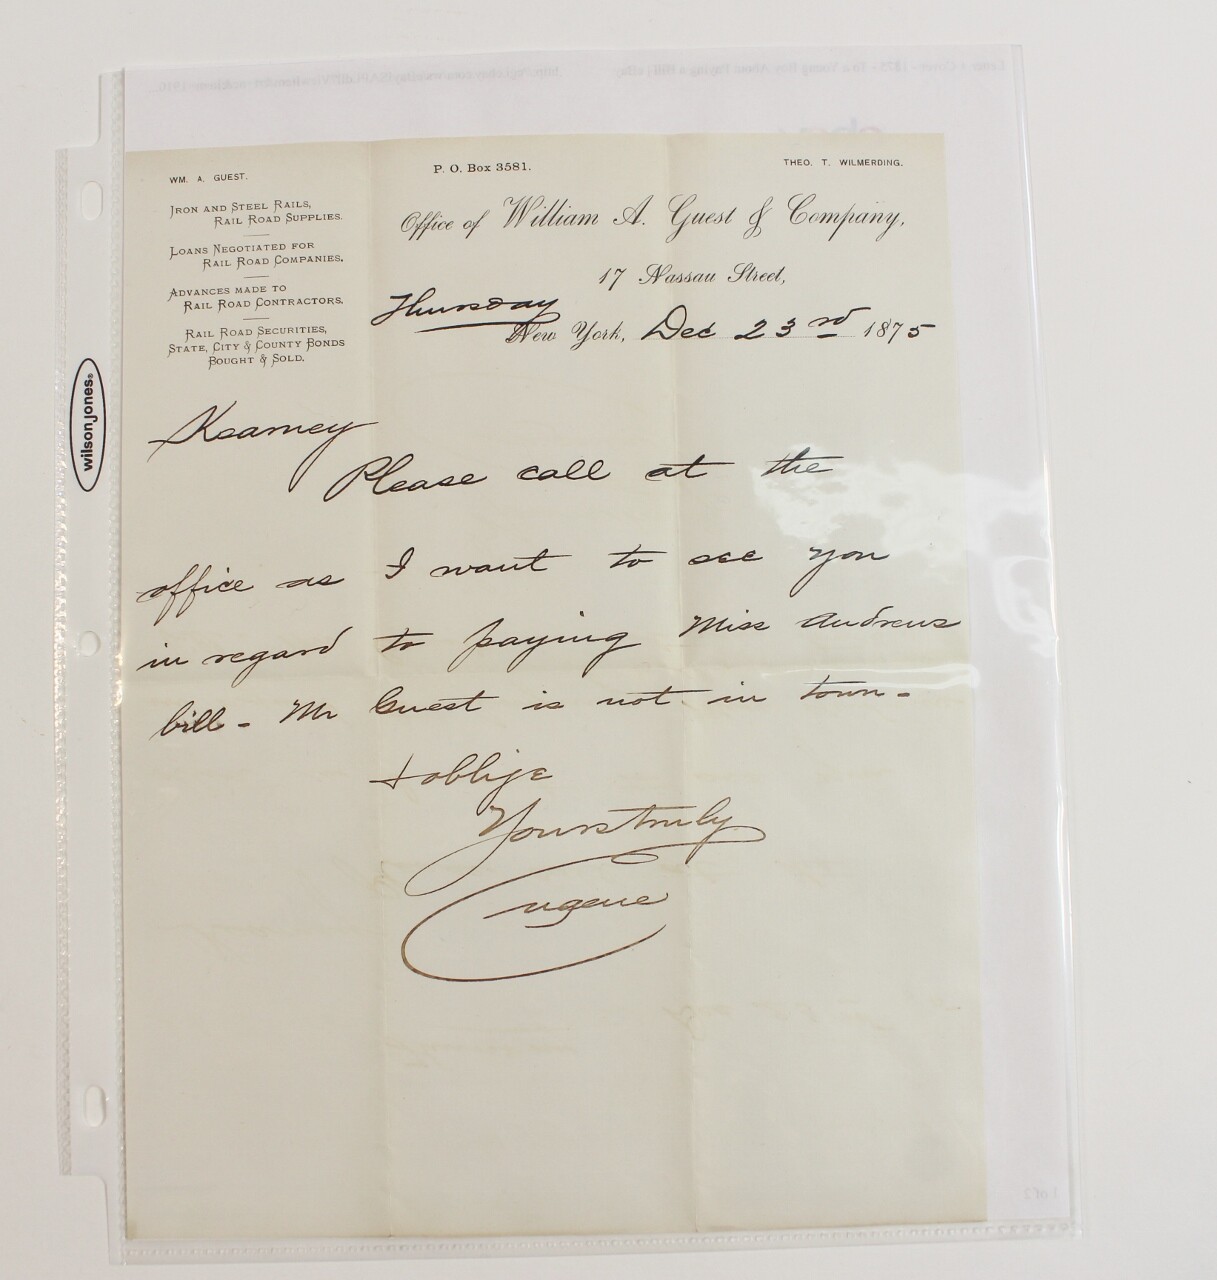 WM. A. GUEST.
P. O. Box 3581.
THEO. T. WILMERDING.
IRON AND STEEL RAILS,
RAIL ROAD SUPPLIES.
LOANS NEGOTIATED FOR
RAIL ROAD COMPANIES.
ADVANCES MADE TO
RAIL ROAD CONTRACTORS.
RAIL ROAD SECURITIES,
STATE, CITY & COUNTY BONDS
BOUGHT & SOLD.
Office of William A. Guest & Company,
17 Nassau Street,
Thursday
New York, Dec 23rd 1875
Kearney
Please call at the
office as I want to see you
in regard to paying Miss Andrews
bill - Mr Guest is not in town -
& oblige
Yours truly
Eugene
wilson jones®
1 of 2